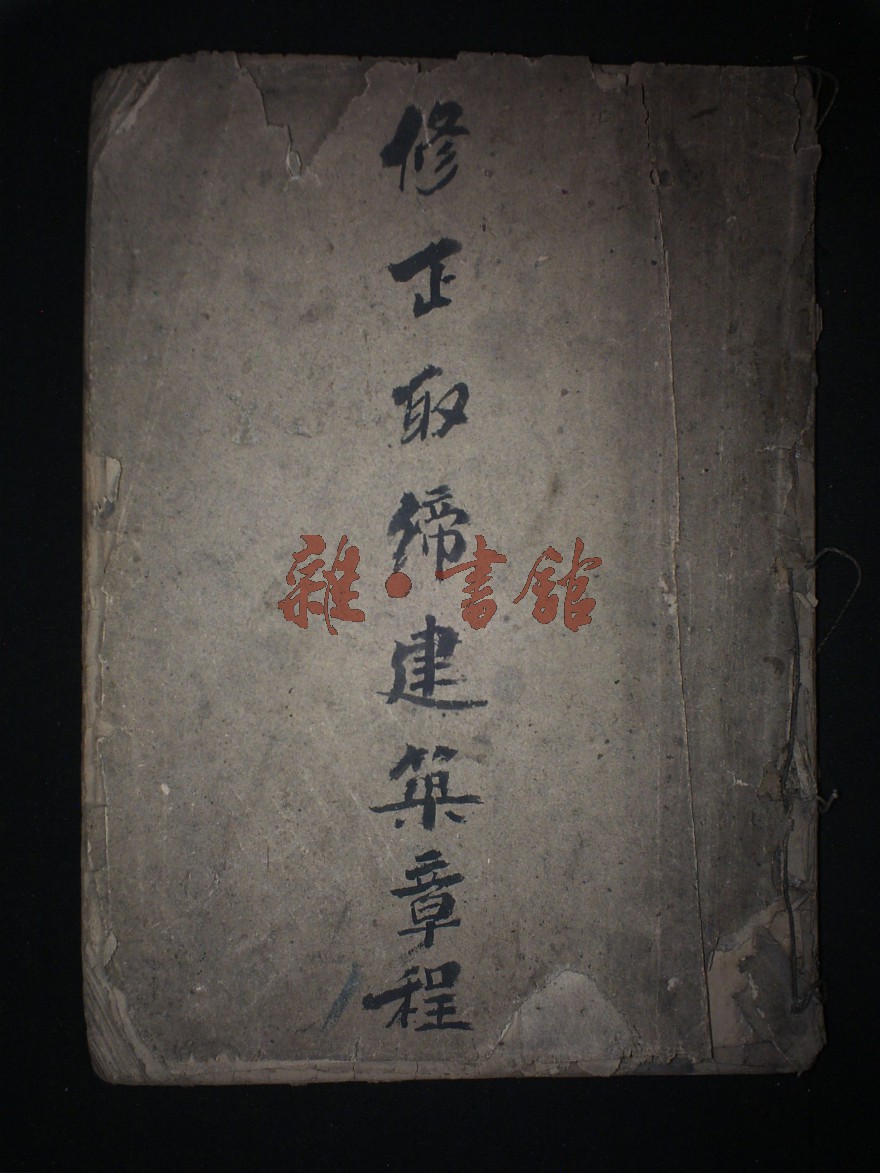 修正取締建築章程
雜·書館